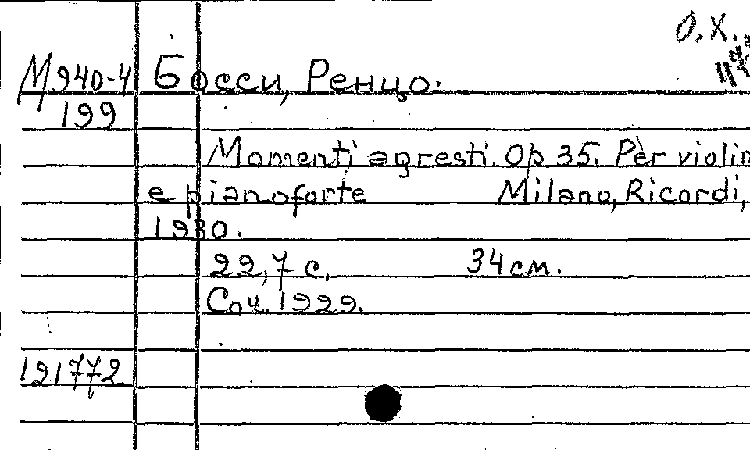 О.Х.
М940-4 Босси, Ренцо.
199
Momenti agresti. Op 35. Per violin
e pianoforte Milano, Ricordi,
1930.
22,7 с. 34 см.
Соч. 1929.
121772